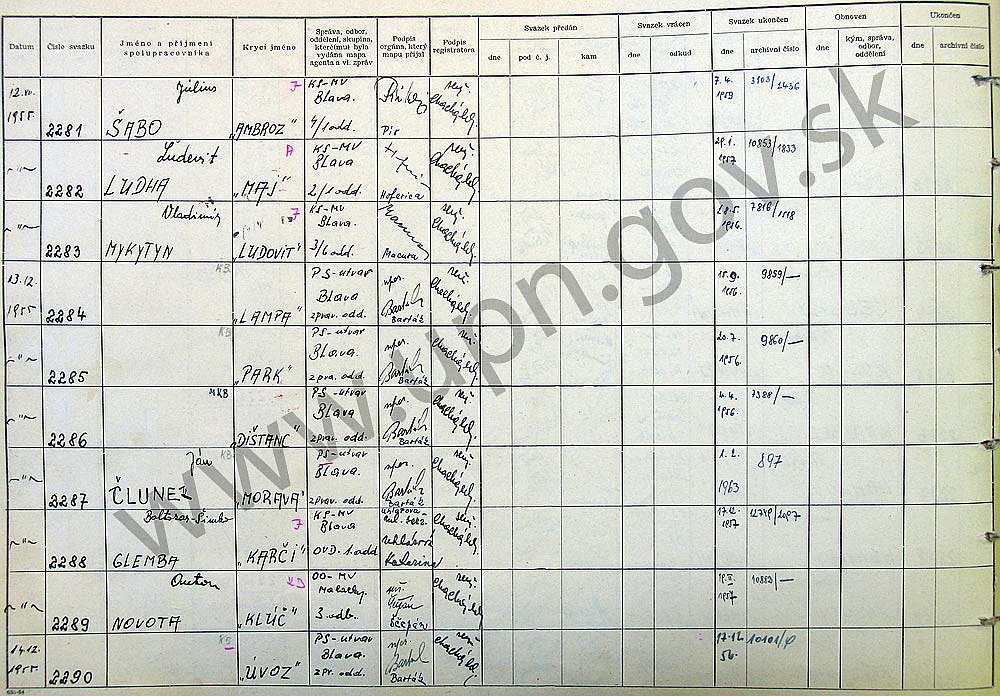 Datum
Číslo svazku
Jméno a příjmení spolupracovníka
Krycí jméno
Správa, odbor, oddělení, skupina, kterému(i) byla vydána mapa agenta a vl. zpráv
Podpis orgána, který mapu přijal
Podpis registrátora
Svazek předán
dne
pod č. j.
kam
Svazek vrácen
dne
odkud
Svazek ukončen
dne
archivní číslo
Obnoven
dne
kým, správa, odbor, oddělení
Ukončen
dne
archivní číslo
1955 2281 Július ŠABO „AMBROZ" J KS-MV Blava. 4/1 odd. 7.4. 1959 3103/1436
2282 Ľudevit LUDHA „MAJ" A KS-MV Blava 2/1 odd. Hoferica 29.1. 1957 10853/1833
2283 Vladimír MYKYTYN „LUDOVIT" J KS-MV Blava. 3/6 odd. Macura 28.5. 1956. 7816/1118
13.12. 1955 2284 KB „LAMPA" PS-utvar Blava zprav. odd. npor. Barták 15.9. 1956. 9859/—
2285 KB „PARK" PS-utvar Blava. zprav. odd. npor. Barták 20.7. 1956. 9860/—
2286 KB „DIŠTANC" PS-utvar Blava zprav. odd. npor. Barták 4.4. 1956. 7388/—
2287 Ján ČLUNEK KB „MORAVA" PS-utvar Blava. zprav. odd. npor. Barták 1963 897
2288 GLEMBA „KARČI" J KS-MV Blava OVD. 1. odd Uhlárová Katarina 17.12. 1957
2289 Anton NOVOTA KB „KLÚČ" OO-MV Malacky 3. odb. 1957 10882/—
14.12. 1955 2290 KB „ÚVOZ" PS-utvar Blava. zpr. odd. npor. Barták 17.12. 56. 10101/
www.upn.gov.sk